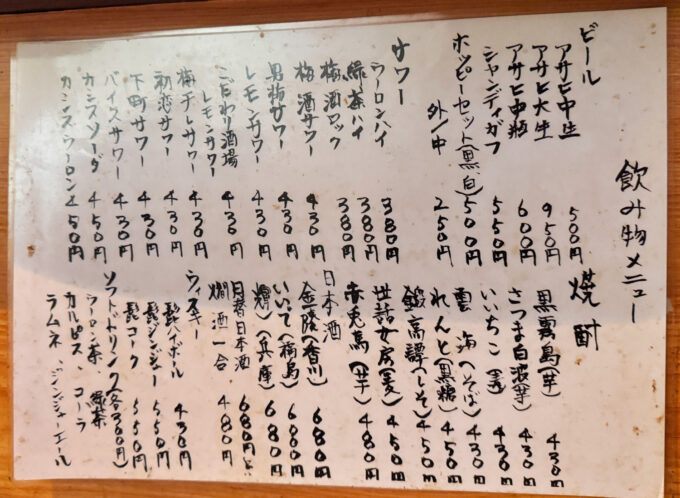 飲み物メニュー
ビール
アサヒ中生 500円
アサヒ大生 950円
アサヒ中瓶 600円
シャンディガフ 550円
ホッピーセット(黒、白) 500円
外/中 250円
サワー
ウーロンハイ 380円
緑茶ハイ 380円
梅酒ロック 380円
梅酒サワー 430円
男梅サワー 430円
レモンサワー 430円
こだわり酒場
レモンサワー 430円
梅干しサワー 430円
初恋サワー 430円
下町サワー 430円
バイスサワー 430円
カシスソーダ 450円
カシスウーロン 450円
焼酎
黒霧島(芋) 430円
さつま白波(芋) 430円
いいちこ(麦) 430円
雲海(そば) 430円
れんと(黒糖) 450円
鍛高譚(しそ) 450円
世話女房(麦) 450円
赤兎馬(芋) 480円
日本酒
金陵(香川) 680円
いいて(福島) 680円
(兵庫) 680円
月替日本酒 680円〜
燗酒一合 480円
ウィスキー
髭ハイボール 430円
髭ジンジャー 550円
髭コーク 550円
ソフトドリンク(各300円)
ウーロン茶 緑茶
カルピス、コーラ
ラムネ、ジンジャーエール